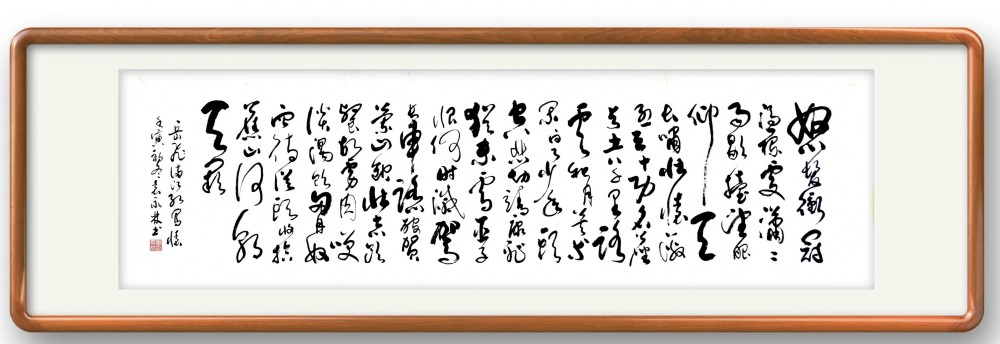 怒髮衝冠
憑欄處瀟々
雨歇擡望眼
仰天
長嘯壯懷激
烈三十功名塵
与土八千里路
雲和月莫等
閑白了少年頭
空悲切靖康恥
猶未雪臣子
恨何時滅駕
長車踏破賀
蘭山缺壯志飢
餐胡虜肉笑
談渴飲匈奴
血待從頭收拾
舊山河朝
天闕
岳飛滿江紅寫懷
壬寅初冬袁永林书